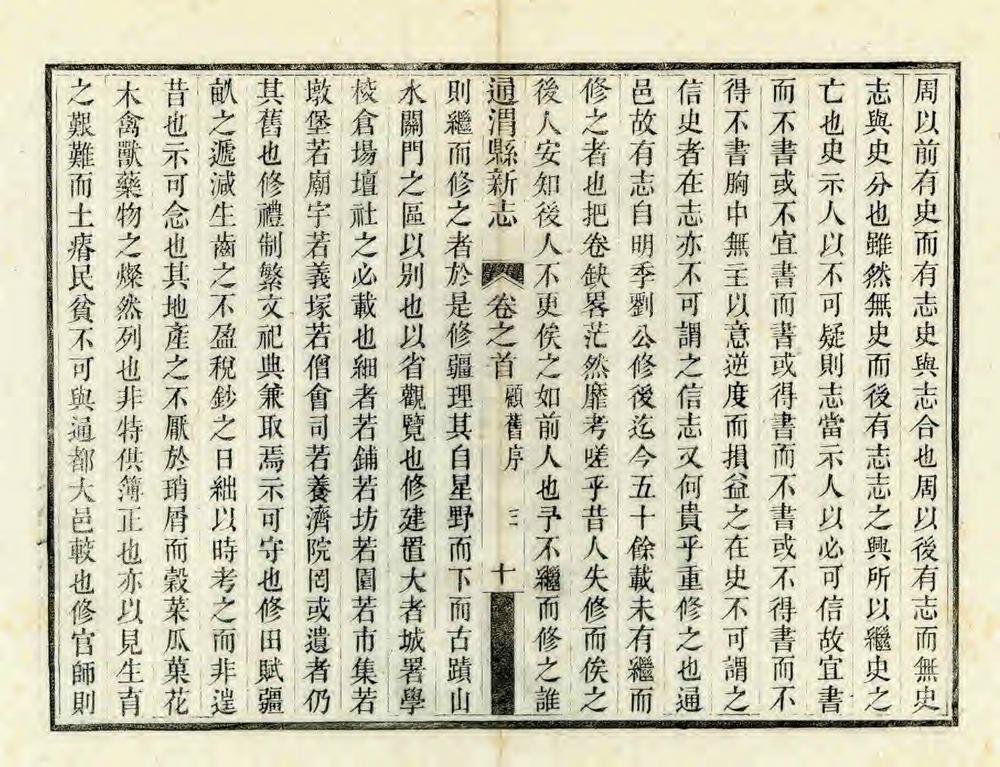 周以前有史而有志史與志合也周以後有志而無史
志與史分也雖然無史而後有志志之興所以繼史之
亡也史示人以不可疑則志當示人以必可信故宜書
而不書或不宜書而書或得書而不書或不得書而不
得不書胸中無主以意逆度而損益之在史不可謂之
信史者在志亦不可謂之信志又何貴乎重修之也通
邑故有志自明季劉公修後迄今五十餘載未有繼而
修之者也把卷缺畧茫然靡考嗟乎昔人失修而俟之
後人安知後人不更俟之如前人也予不繼而修之誰
通渭縣新志 卷之首 顧舊序 三 十
則繼而修之者於是修疆理其自星野而下而古蹟山
水關門之區以别也以省觀覽也修建置大者城署學
校倉場壇社之必載也細者若鋪若坊若園若市集若
墩堡若廟宇若義塚若僧會司若養濟院罔或遺者仍
其舊也修禮制繁文祀典兼取焉示可守也修田賦疆
畝之遞減生齒之不盈稅鈔之日絀以時考之而非遑
昔也示可念也其地產之不厭於瑣屑而穀菜瓜菓花
木禽獸藥物之燦然列也非特供簿正也亦以見生育
之艱難而土瘠民貧不可與通都大邑較也修官師則